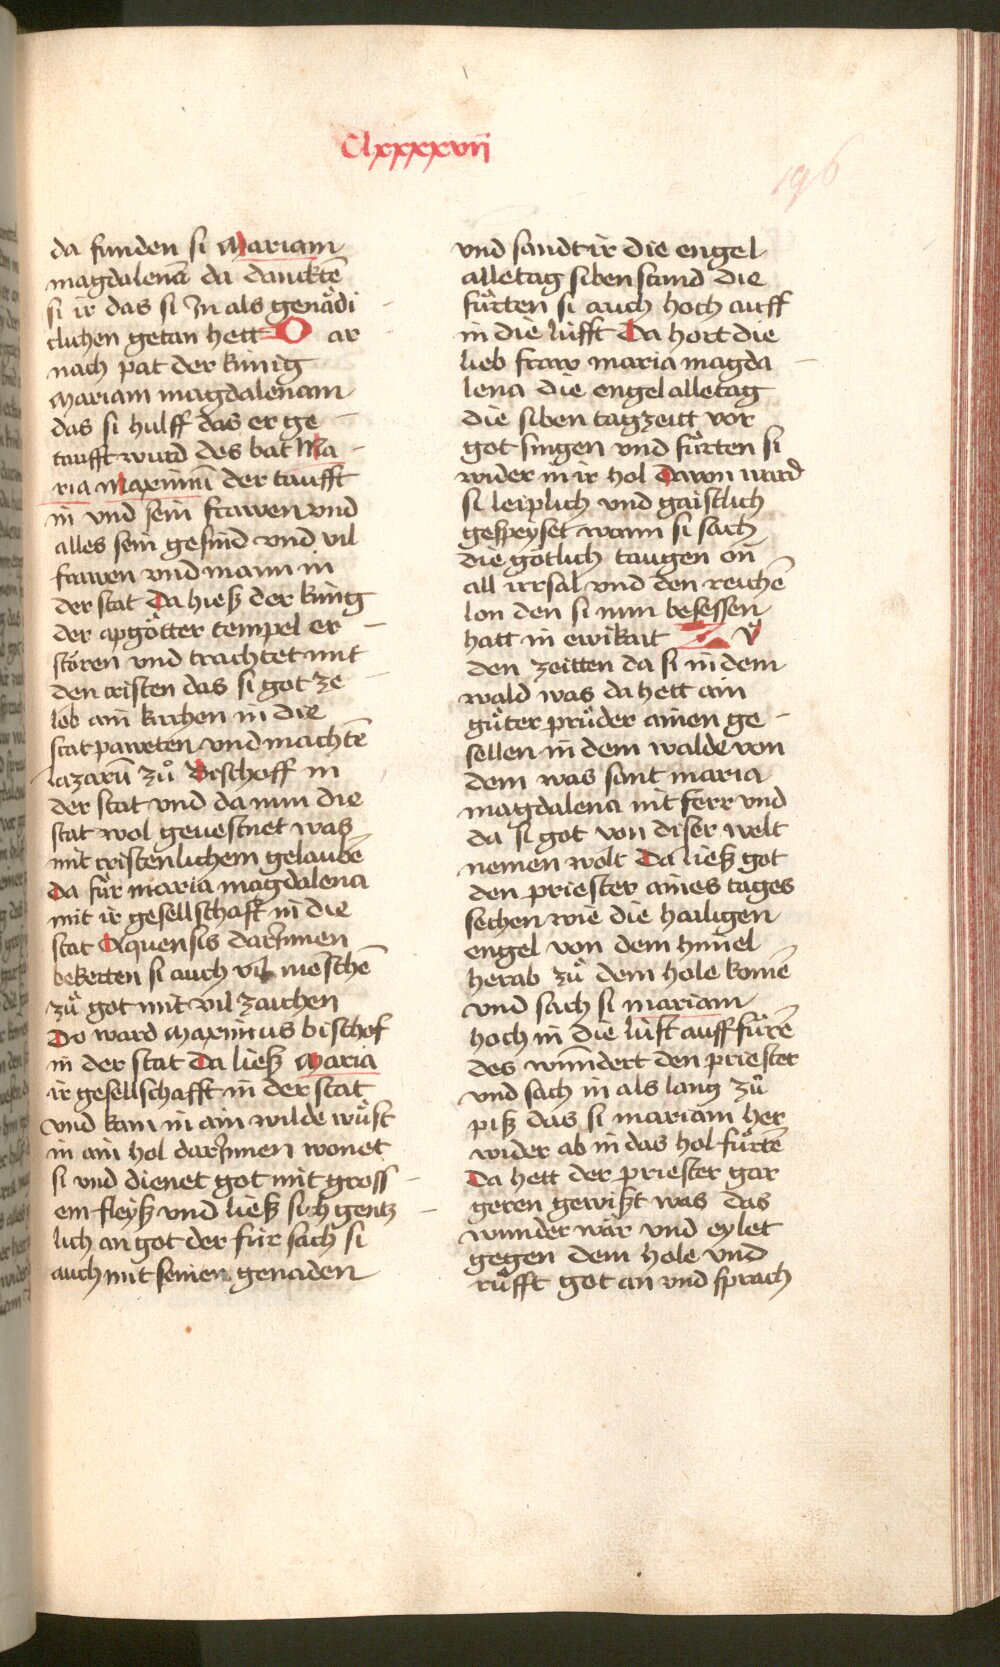 Clxxxxvii
196
da funden si Mariam
magdalenā da dancktē
si ir das si In als genädi
clichen getan hett D ar
nach pat der künig
Mariam magdalenam
das si hulff das er ge
taufft wurd des bat Ma
ria Maximinū der taufft
in vnd sein frawen vnd
alles sein gesind vnd vil
frawen vnd mann in
der stat Da hieß der künig
der apgötter tempel er
stören vnd trachtet mit
den cristen das si got ze
lob ain kirchen in die
stat paweten vnd machtē
lazarū zů Bischoff in
der stat vnd da nun die
stat wol geuestnet was
mit cristenlichem gelaubē
Da fůr maria magdalena
mit ir gesellschaft in die
stat Aquensis darInnen
bekerten si auch vil menschē
zů got mit vil zaichen
Do ward Maximus bischof
in der stat Da ließ Maria
ir gesellschafft in der stat
vnd kam in ain wilde wůst
in ain hol darInnen wonet
si vnd dienet got mit gross
em fleyß vnd ließ sich gentz
lich an got der fůr sach si
auch mit seinen genaden
vnd sandt ir die engel
alle tag siben stund die
fůrten si auch hoch auff
in die lüfft Da hort die
lieb fraw maria magda
lena die engel alle tag
die siben tagzeitt vor
got singen vnd fůrten si
wider in ir hol Dauon ward
si leiplich vnd gaistlich
gespeyset wann si sach
die götlich taugen on
all irrsal vnd den reichē
lon den si nun besessen
hatt in ewikait Z ů
den zeitten da si in dem
wald was da hett ain
gůter průder ainen ge
sellen in dem walde von
dem was sant maria
magdalena nit ferr vnd
da si got von diser welt
nemen wolt Da ließ got
den priester aines tages
sechen wie die hailigen
engel von dem himel
herab zů dem hole komē
vnd sach si mariam
hoch in die luft auff fůrē
des wundert den priester
vnd sach in als lang zů
piß das si mariam her
wider ab in das hol fůrtē
Da hett der priester gar
geren gewißt was das
wunder wär vnd eylet
gegen dem hole vnd
růfft got an vnd sprach